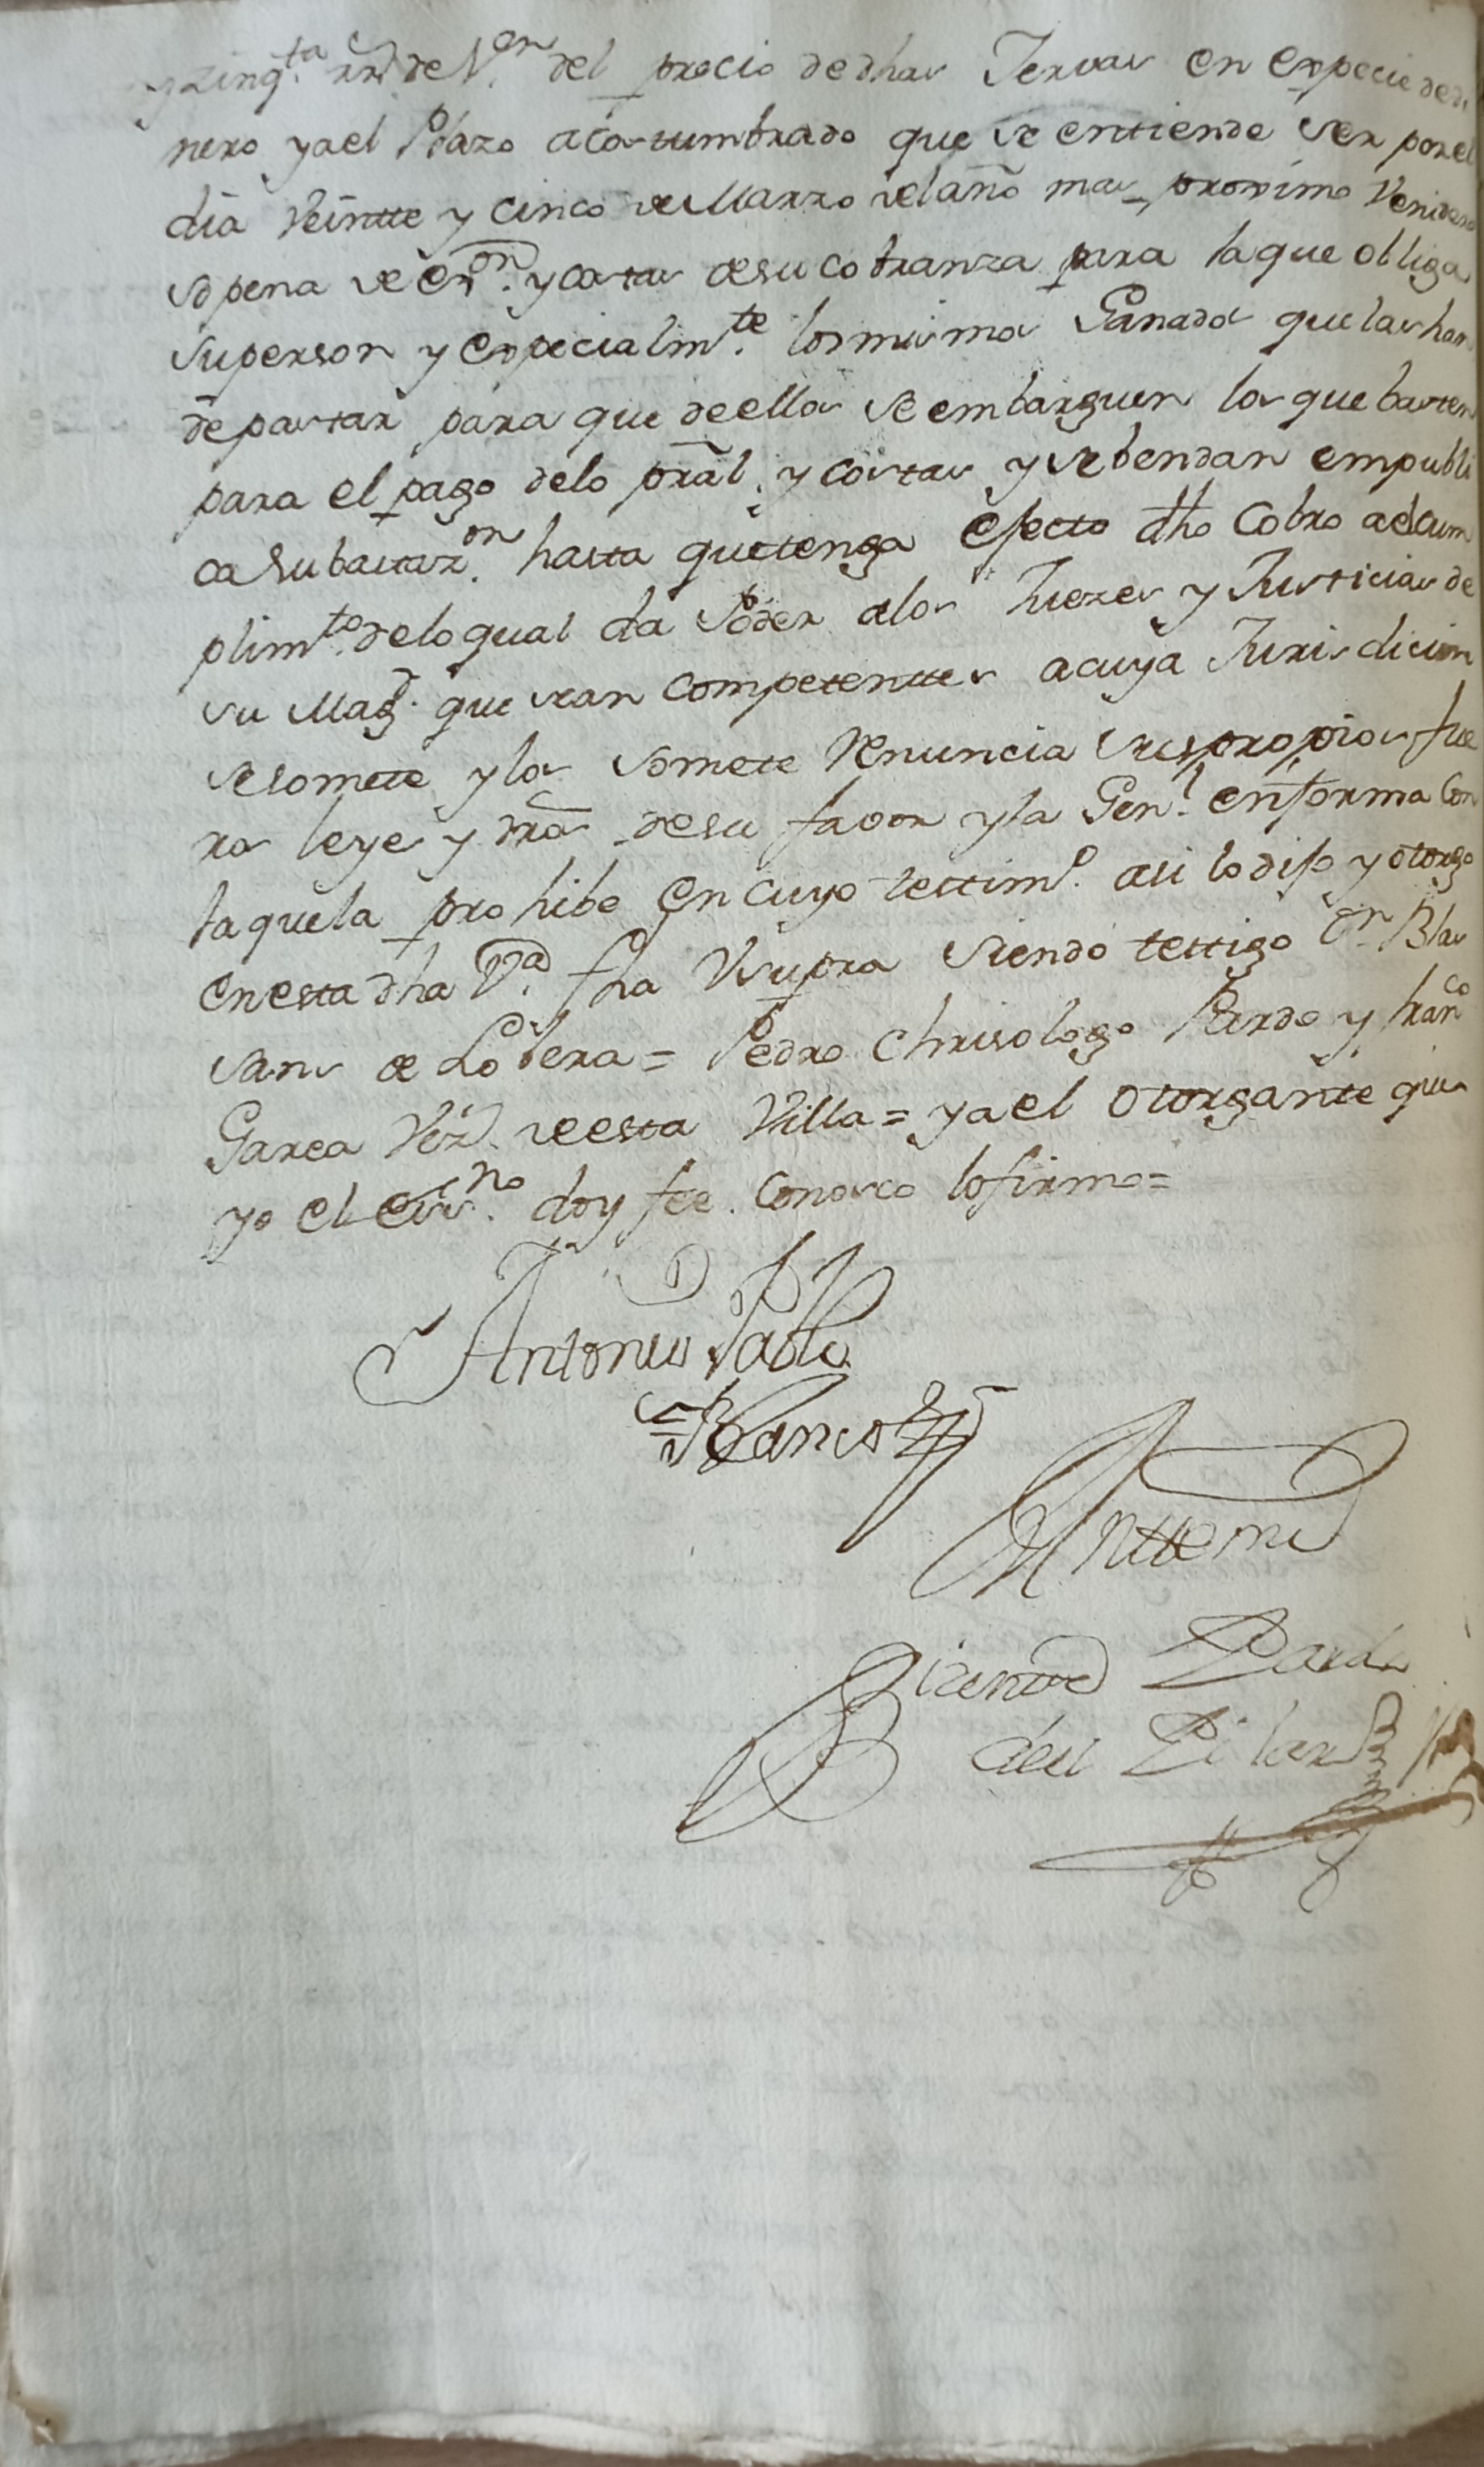 y zinq.ta rrs de V.on del precio de dhas Yervas en expecie de di
nero y a el Plazo acostumbrado que se entiende ser por el
dia Veintte y cinco de Marzo del año mas proximo Venidero
so pena de ex.on y costas de su cobranza para la que obliga
su person y expecialm.te los mismos Ganados que las han
de pastar para que de ellos se embarguen los que basten
para el pago de lo pral. y costas y se bendan em publi
ca subastaz.on hasta que ttenga efecto dho Cobro a el cum
plim.to de lo qual da Poder a los Juezes y Justicias de
su Magd. que sean competenttes a cuya Jurisdicion
se somete y los somete Renuncia sus propios fue
ros leyes y dros de su favor y la Gen.l en forma con
la que la prohibe en cuyo testtim.o asi lo dijo y otorgo
en esta dha V.a fha Vt supra siendo testtigos Dn Blas
Sans de Lobera = Pedro Chrisologo Pardo y Fran.co
Garca Vez.s de esta Villa = y a el otorgante que
yo el ess.no doy fee conosco lo firmo =
Antonio Pablo
Blanco
Antte mi
Bizente Pardo
del Pilar